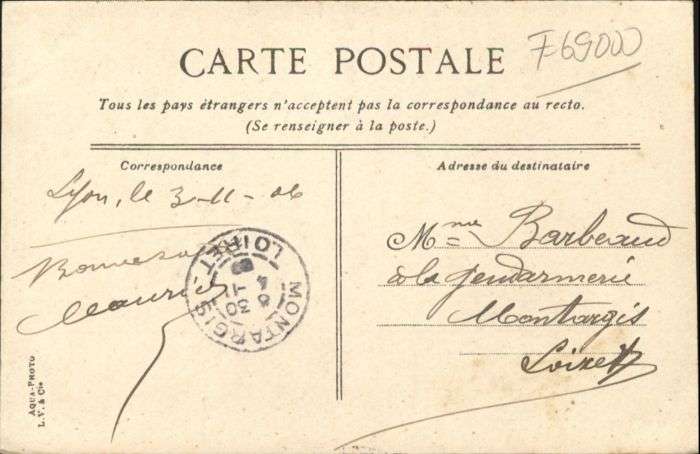 F69000
CARTE POSTALE
Tous les pays étrangers n'acceptent pas la correspondance au recto.
(Se renseigner à la poste.)
Correspondance
Lyon, le 3-11-06
Maurice
AQUA-PHOTO
L. V. & Cie
MONTARGIS
LOIRET
Adresse du destinataire
Mme Barbeaud
à la gendarmerie
Montargis
Loiret